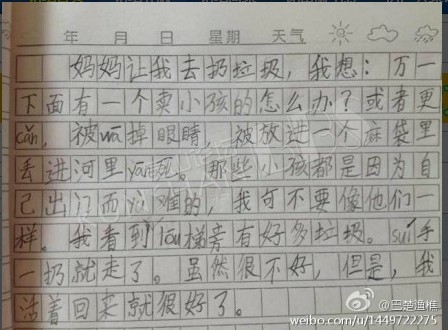 年 月 日 星期 天气
妈妈让我去扔垃圾，我想：万一
下面有一个卖小孩的怎么办？或者更
cǎn，被wā掉眼睛，被放进一个麻袋里
丢进河里yān死。那些小孩都是因为自
己出门而遇难的，我可不要像他们一
样。我看到lóu梯旁有好多垃圾。suí手
一扔就走了。虽然很不好，但是，我
活着回来就很好了。
@巴楚渔樵
weibo.com/u/1449722275